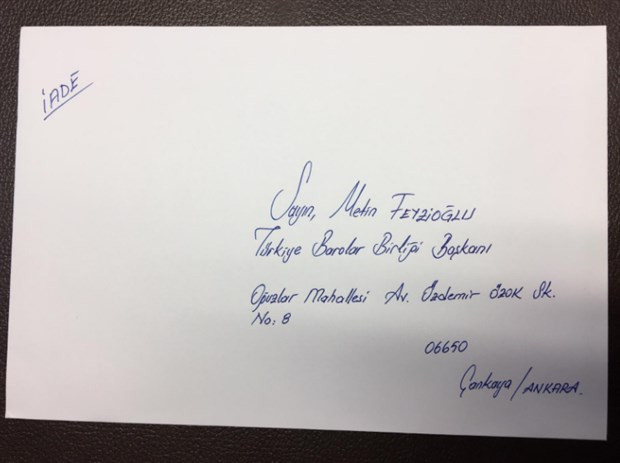 İADE
Sayın, Metin FEYZİOĞLU
Türkiye Barolar Birliği Başkanı
Oğuzlar Mahallesi Av. Özdemir ÖZOK Sk.
No: 8
06650
Çankaya/ANKARA.